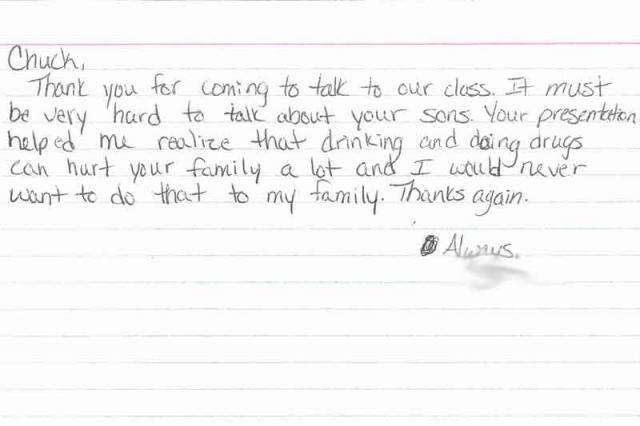 Chuck,
Thank you for coming to talk to our class. It must
be very hard to talk about your sons. Your presentation
helped me realize that drinking and doing drugs
can hurt your family a lot and I would never
want to do that to my family. Thanks again.
Always.